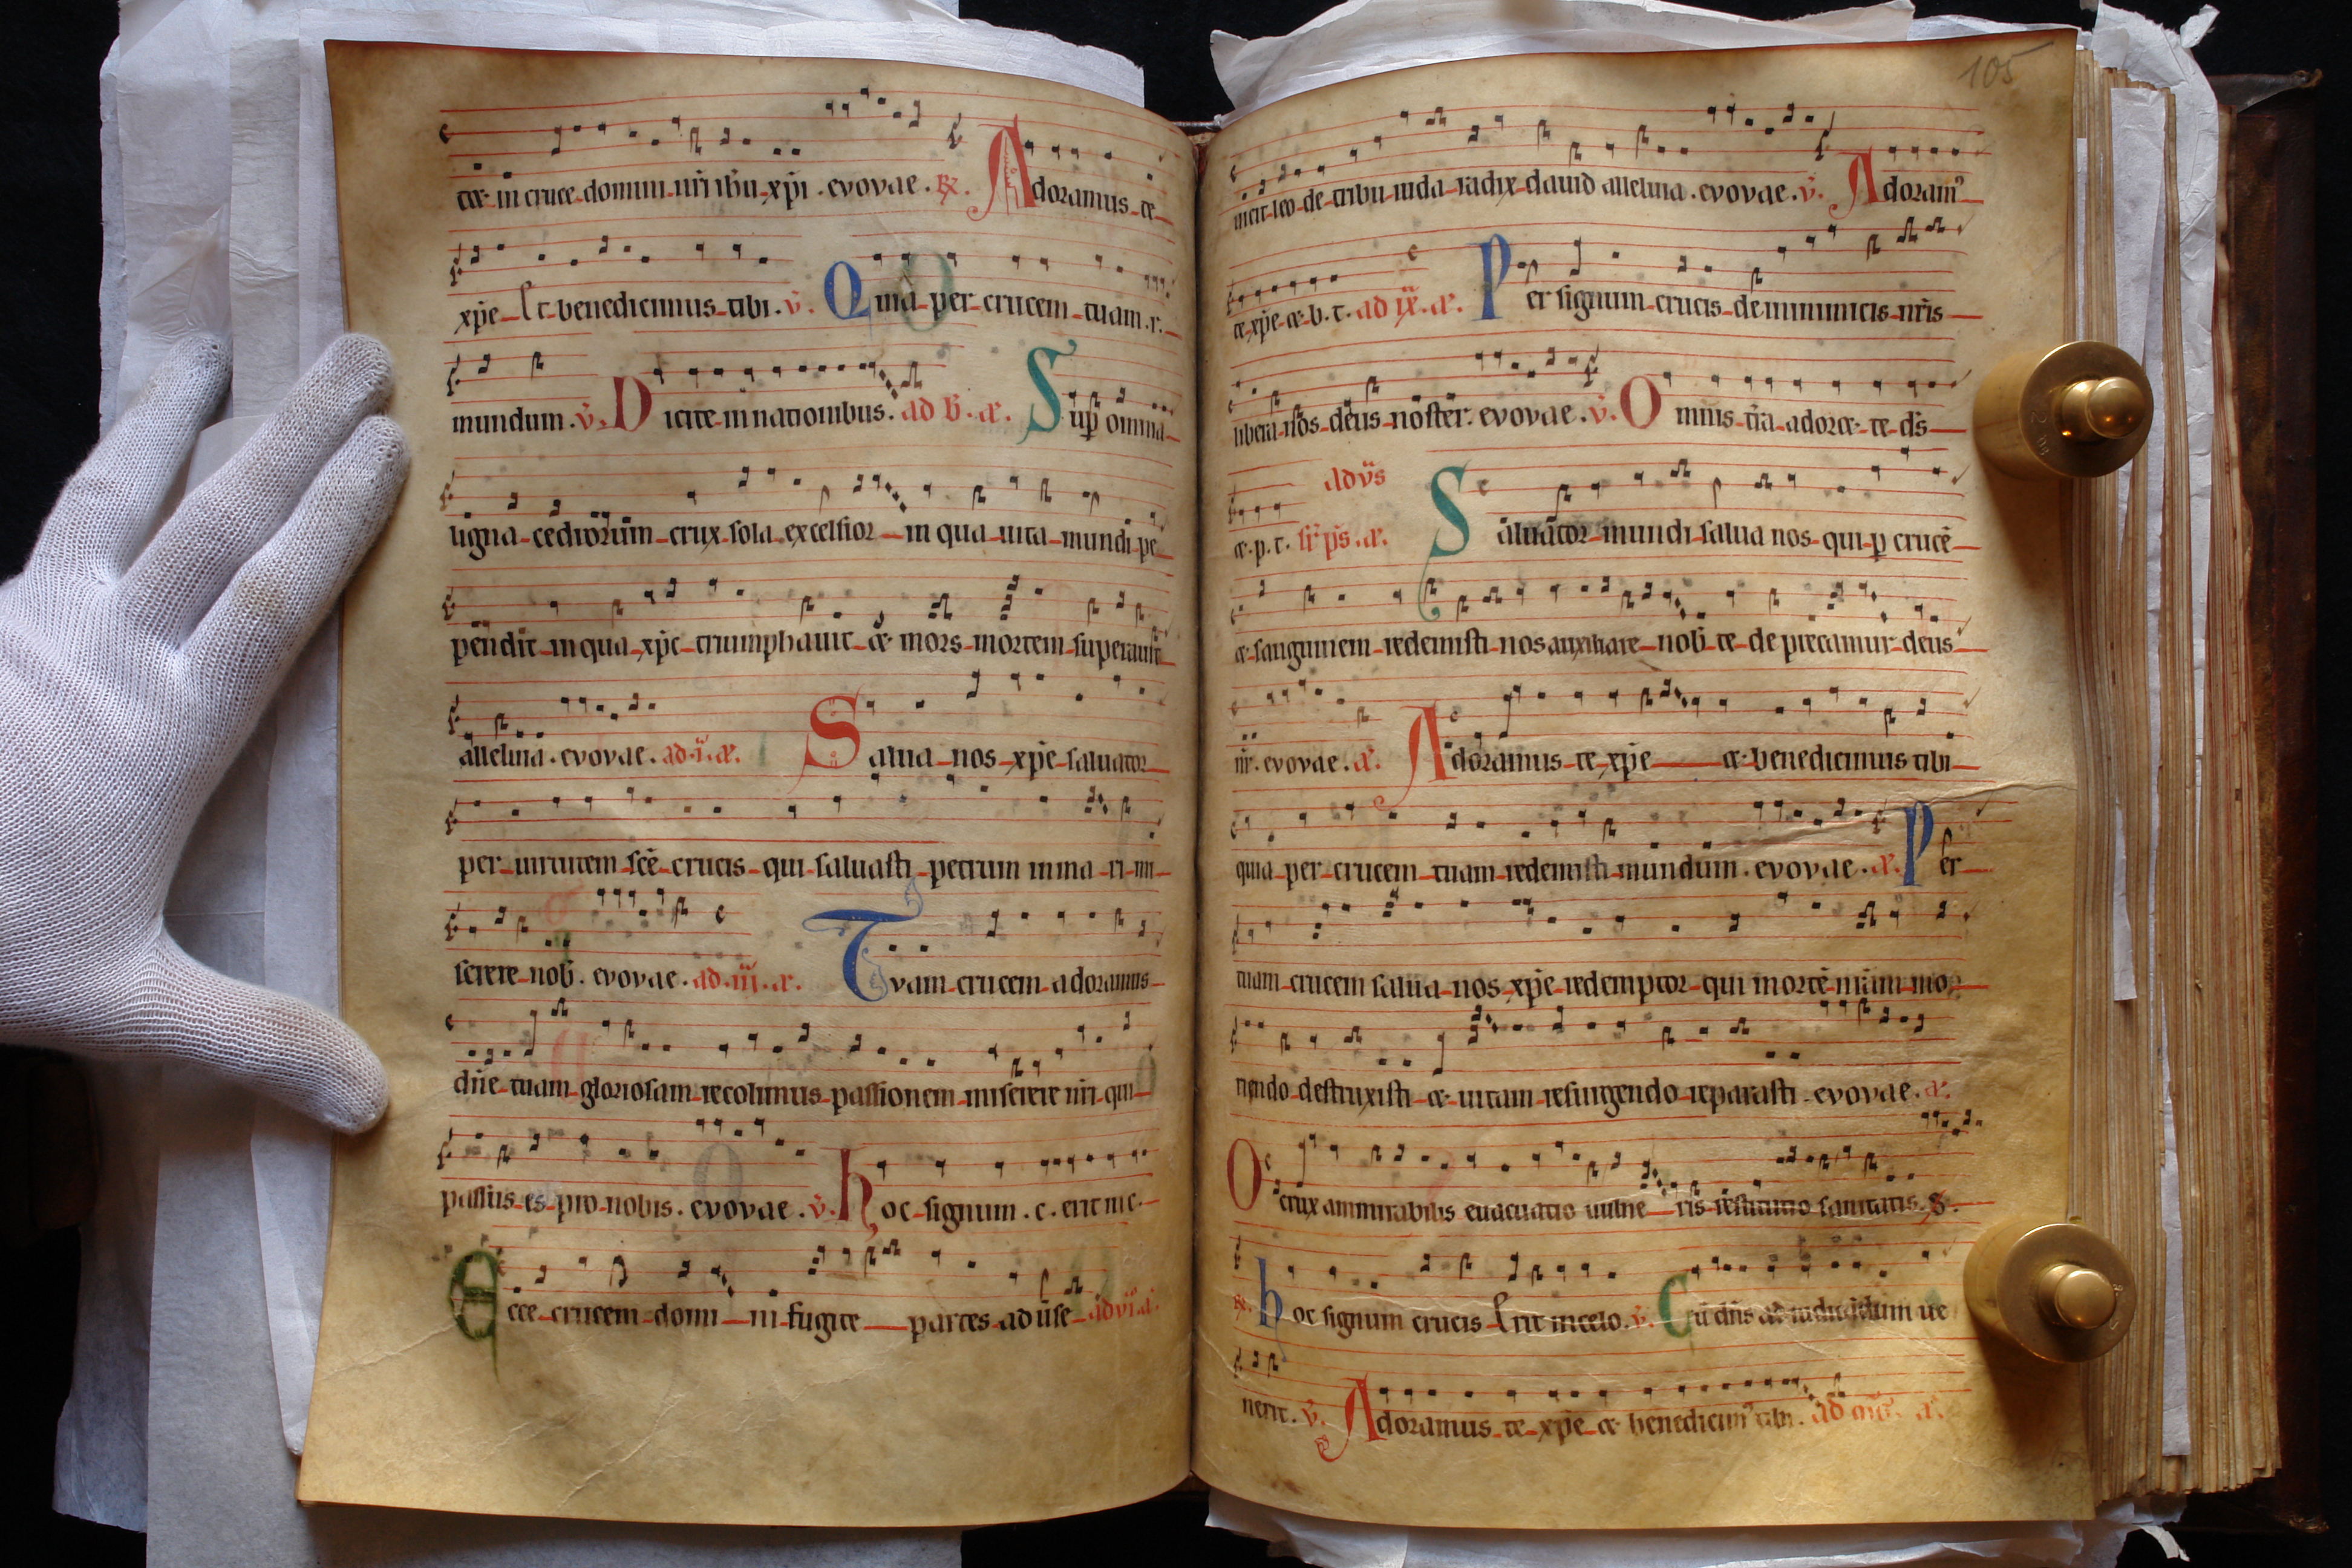 ce. in cruce domini nr̄i ih̄u xp̄i . evovae . R̄. Adoramus te
xp̄e Et benedicimus tibi . v̄. Quia per crucem tuam . r.
mundum . v̄. Dicite in nationibus . ad b̄. a. Sup̄ omnia
ligna cedrorum crux sola excelsior in qua uita mundi pe
pendit in qua xp̄c triumphauit & mors mortem superauit
alleluia . evovae . ad .i. a. Salua nos xp̄e saluator
per uirtutem scē crucis qui saluasti petrum in ma ri mi
serere nob̄ . evovae . ad .iii. a. Tvam crucem adoramus
dn̄e tuam gloriosam recolimus passionem miserere nr̄i qui
passus es pro nobis . evovae . v̄. hoc signum . c. erit in c.
Ecce crucem domi ni fugite partes aduse ad vi. a.
105
uicit leo de tribu iuda radix dauid alleluia . evovae . v̄. Adoram⁹
te xp̄e & b. t. ad ix. a. Per signum crucis de inimicis nr̄is
libera nos deus noster . evovae . v̄. Omnis tr̄a adoret te ds̄
& p. t. sr̄ ps̄. a. ad vs̄ Saluator mundi salua nos qui p̄ crucē
& sanguinem redemisti nos auxiliare nob̄ te de precamur deus
nr̄ . evovae . a. Adoramus te xp̄e & benedicimus tibi
quia per crucem tuam redemisti mundum . evovae . a. Per
tuam crucem salua nos xp̄e redemptor qui mortē nr̄am mo
riendo destruxisti & uitam resurgendo reparasti . evovae . a.
O crux ammirabilis euacuatio uulne ris restitutio sanitatis . S.
R̄. hoc signum crucis Erit in celo . v̄. Cū dn̄s ad iudicandum ue
nerit . v̄. Adoramus te xp̄e & benedicim⁹ tibi . ad a.